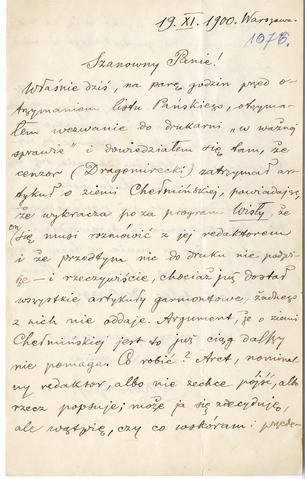 19. XI. 1900. Warszawa.
1076.
Szanowny Panie!
Właśnie dziś, na parę godzin przed o-
trzymaniem listu Pańskiego, otrzyma-
łem wezwanie do drukarni „w ważnej
sprawie" i dowiedziałem się tam, że
cenzor (Dragomirecki) zatrzymał ar-
tykuł o ziemi Chełmińskiej, powiadając,
że wykracza poza program Wisły, że
on się musi rozmówić z jej redaktorem
i że przedtym nic do druku nie podpi-
sze — i rzeczywiście, chociaż już dostał
wszystkie artykuły garmontowe, żadnego
z nich nie oddaje. Argument, że o ziemi
Chełmińskiej jest to już ciąg dalszy
nie pomaga. Co robić? Arct, nominal-
ny redaktor, albo nie zechce pójść, albo
rzecz popsuje; może ja się zdecyduję,
ale wątpię, czy co wskóram: przede-